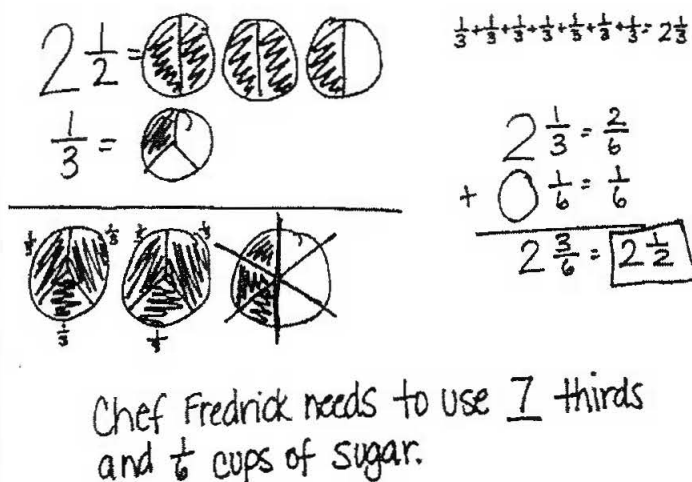 2 1/2 =
1/3 =
1/3 1/3 1/3 1/3
1/3 1/3
1/3+1/3+1/3+1/3+1/3+1/3+1/3=2 1/3
2 1/3 = 2/6
+ 0 1/6 = 1/6
2 3/6 = 2 1/2
Chef Fredrick needs to use 7 thirds
and 1/6 cups of sugar.